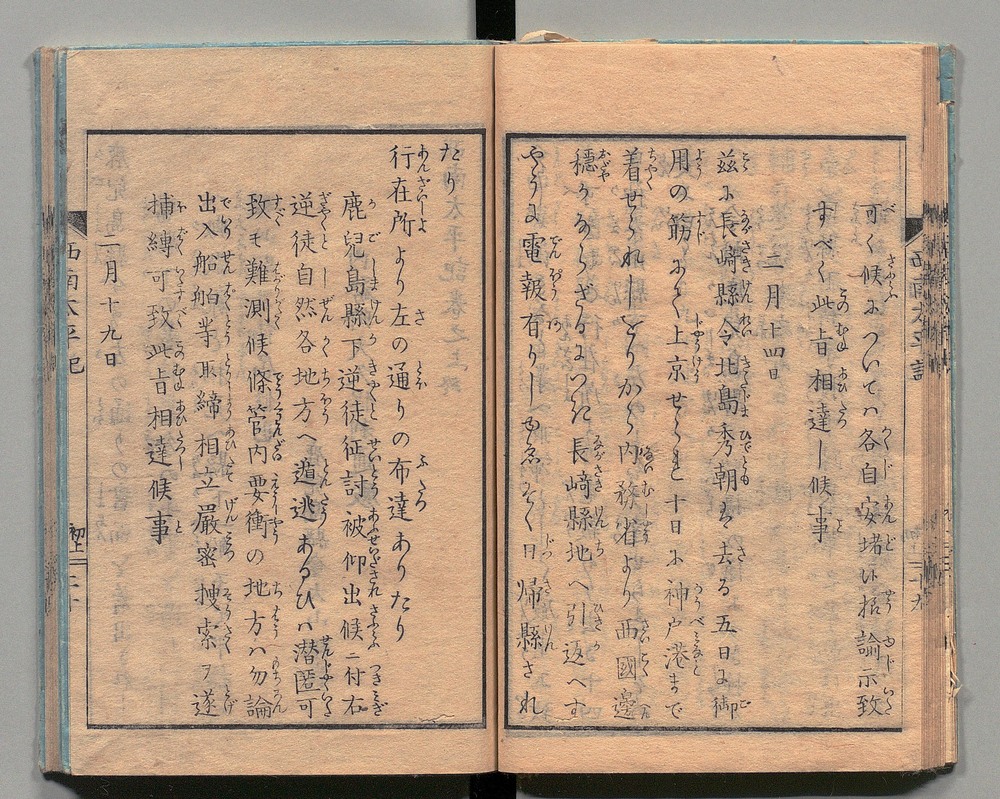 可く候ふついてハ各自安堵い㧞諭示致
すべく此旨相達し候事
二月十四日
茲に長崎縣令北島秀朝ハ去る五日に御
用の筋あて上京せられ十日に神戸港まで
着せられしをりから内務省より西國邊
穏かならざるにつき長崎縣地へ引返へす
やうに電報有りしゆゑ
日帰縣され
たり
行在所より左の通りの布達ありたり
鹿兒島縣下逆徒征討被仰出候ニ付右
逆徒自然各地方へ遁逃あるひハ潜匿可
致モ難測候條管内要衝の地方ハ勿論
出入船舶等取締相立嚴密捜索ヲ遂
捕縛可致此旨相達候事
二月十九日
西南太平記
初上
二十